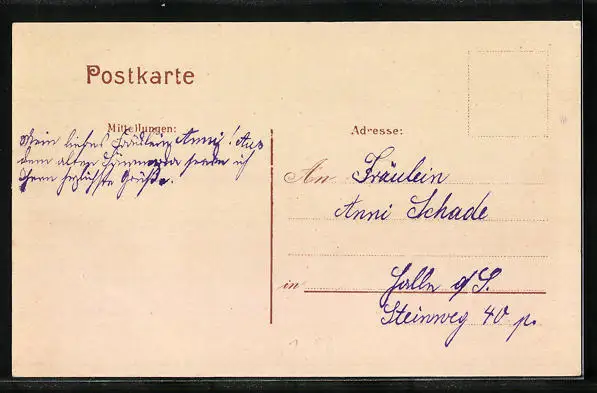 Postkarte
Mitteilungen:
Mein liebes Fräulein Anni! Aus
dem alten sende ich
Ihnen herzlichste Grüße.
Adresse:
An Fräulein
Anni Schade
in Halle a/S.
Steinweg 40 p.